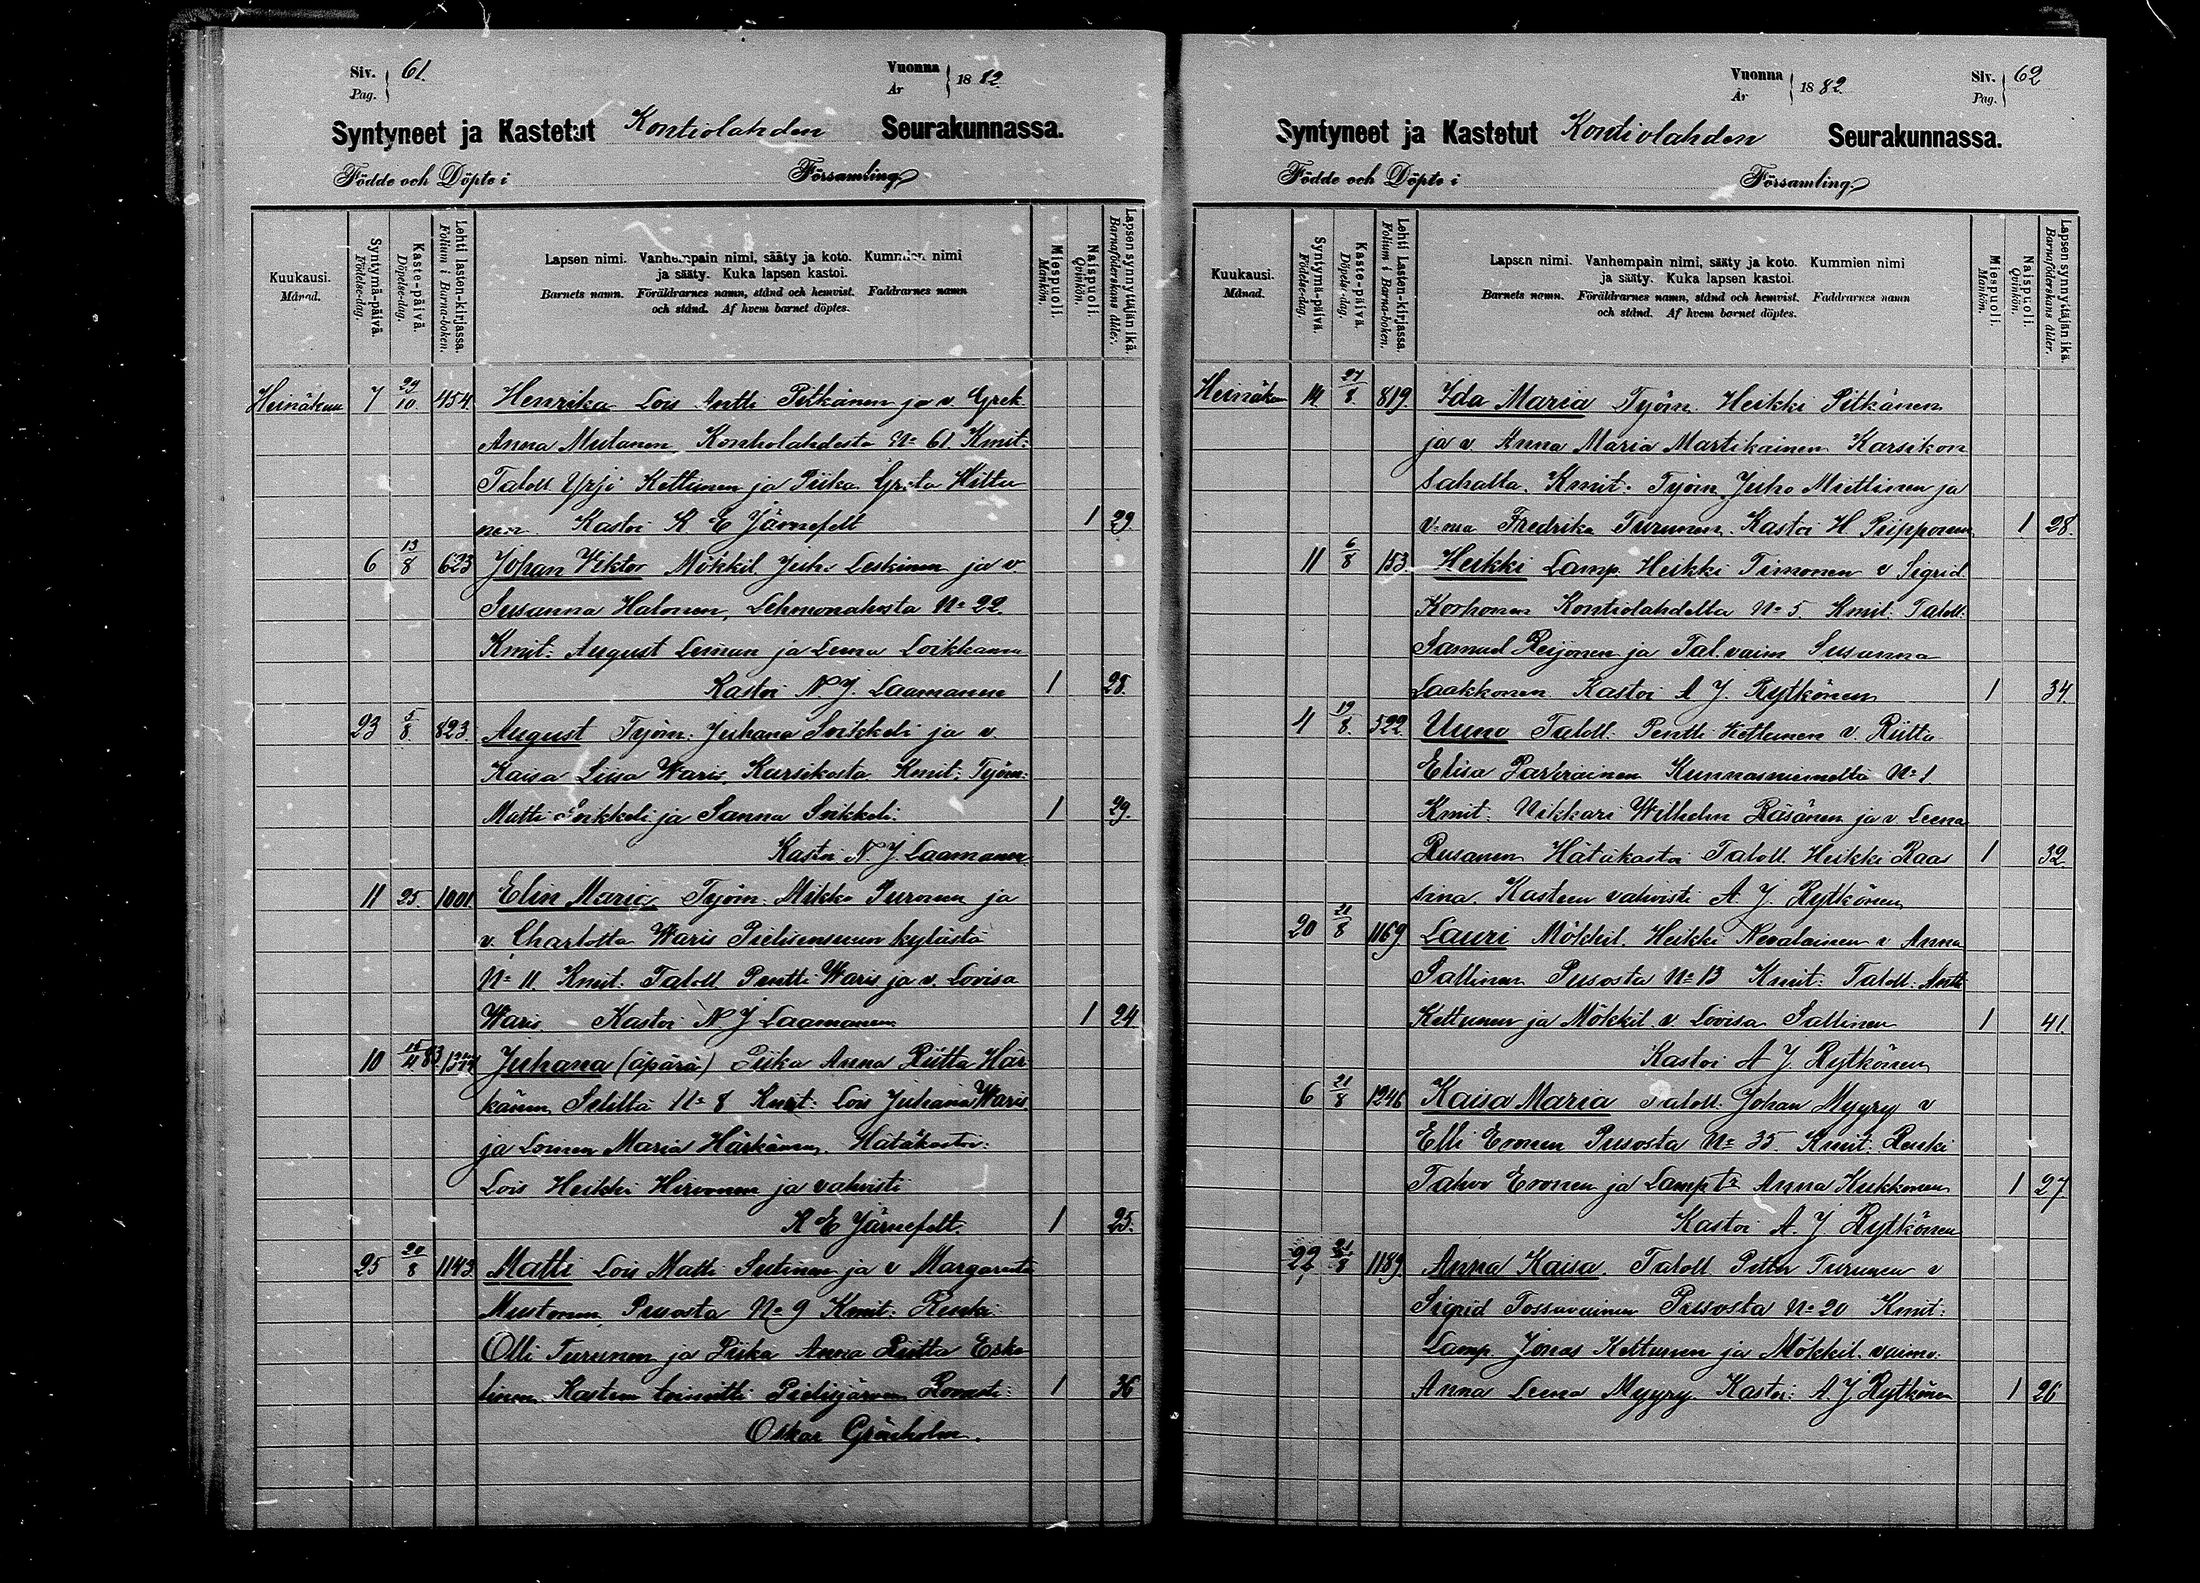 Siv. 61.
Pag.
Vuonna 1882.
År
Syntyneet ja Kastetut Kontiolahden Seurakunnassa.
Födde och Döpte i Församling
Kuukausi.
Månad.
Syntymä-päivä.
Födelse-dag.
Kaste-päivä.
Döpelse-dag.
Lehti lasten-kirjassa.
Folium i Barna-boken.
Lapsen nimi. Vanhempain nimi, sääty ja koto. Kummien nimi
ja sääty. Kuka lapsen kastoi.
Barnets namn. Föräldrarnes namn, stånd och hemvist. Faddrarnes namn
och stånd. Af hvem barnet döptes.
Miespuoli.
Mankön.
Naispuoli.
Qvinkön.
Lapsen synnyttäjän ikä.
Barnaföderskans ålder.
Heinäkuu 7 29/10. 454. Henrika Lois Antti Pitkänen ja v. Gret
Anna Mutanen Kontiolahdesta No 61. Kmit:
Taloll Yrjö Kettunen ja Piika Greta Hiltu
nen. Kastoi K. E Järnefelt 1 29
6 13/8 623 Johan Viktor Mökkil. Juh. Leskinen ja v.
Susanna Halonen, Lehmonahosta No 22.
Kmit: August Leinun ja Leena Loikkanen
Kastoi N J. Laamanen 1 28.
23 5/8. 823. August Työm: Juhana Sikkeli ja v
Kaisa Liisa Waris, Karsikosta Kmit: Työm:
Matti Sikkeli ja Sanna Sikkeli. 1 29.
Kastoi N J. Laamanen
11 25. 1001. Elin Maria Työm. Mikko Turonen ja
v. Charlotta Waris Pielisensuun kylästä
No 11. Kmit. Taloll Pentti Waris ja v. Lovisa
Waris Kastoi N J Laamanen 1 24
10 83. Juhana (äpärä) Piika Anna Riitta Här
känen Seliltä No 8 Kmit: Lois Juhana Waris
ja Loinen Maria Härkänen. Hätäkastoi:
Lois Heikki Hirvonen ja vahvisti
K E Järnefelt. 1 25.
25 20/8 1143. Matti Lois Matti Sutinen ja v Margareeta
Mustonen, Pusosta No 9 Kmit: Renki
Olli Turunen ja Piika Anna Riitta Eske
linen Kasteen toimitti Pielisjärven Rovasti:
Oskar Gräsholm. 1 36
Vuonna 1882.
År
Siv. 62
Pag.
Syntyneet ja Kastetut Kontiolahden Seurakunnassa.
Födde och Döpte i Församling
Kuukausi.
Månad.
Syntymä-päivä.
Födelse-dag.
Kaste-päivä.
Döpelse-dag.
Lehti Lasten-kirjassa.
Folium i Barna-boken.
Lapsen nimi. Vanhempain nimi, sääty ja koto. Kummien nimi
ja sääty. Kuka lapsen kastoi.
Barnets namn. Föräldrarnes namn, stånd och hemvist. Faddrarnes namn
och stånd. Af hvem barnet döptes.
Miespuoli.
Mankön.
Naispuoli.
Qvinkön.
Lapsen synnyttäjän ikä
Barnaföderskans ålder.
Heinäkuu 14. 27/8. 819. Ida Maria Työm. Heikki Pitkänen
ja v. Anna Maria Martikainen Karsikon
sahalta. Kmit: Työm. Juho Miettinen ja
v:nsa Fredrika Turunen. Kastoi H. Piipponen 1 28.
11 6/8 153. Heikki Lamp. Heikki Timonen v Sigrid
Korhonen Kontiolahdelta No 5. Kmit: Taloll:
Samuel Reijonen ja Tal. vaim Susanna
Laakkonen Kastoi A J. Rytkönen 1 34.
4 19/8. 522. Uuno Taloll. Pentti Kettunen v. Riitta
Elisa Parkkinen Kunnasniemeltä No 1
Kmit: Nikkari Wilhelm Räsänen ja v. Leena
Rusanen Hätäkastoi Taloll. Heikki Raas 1 32.
sina. Kasteen vahvisti A. J. Rytkönen
20 21/8 1169. Lauri Mökkil. Heikki Nevalainen v Anna
Sallinen Pusosta No 13 Kmit: Taloll. Antti
Kettunen ja Mökkil. v. Lovisa Sallinen 1 41.
Kastoi A J. Rytkönen
6 21/8 1246 Kaisa Maria Taloll. Johan Myyry v
Elli Eronen Pusosta No 35. Kmit. Renki
Tahvo Eronen ja Lamp Anna Kukkonen 1 27
Kastoi A. J Rytkönen
22 21/8 1189. Anna Kaisa. Taloll. Petter Turunen v
Sigrid Tossavainen Pusosta No 20 Kmit:
Lamp. Jonas Kettunen ja Mökkil. vaimo.
Anna Leena Myyry. Kastoi: A. J Rytkönen 1 26